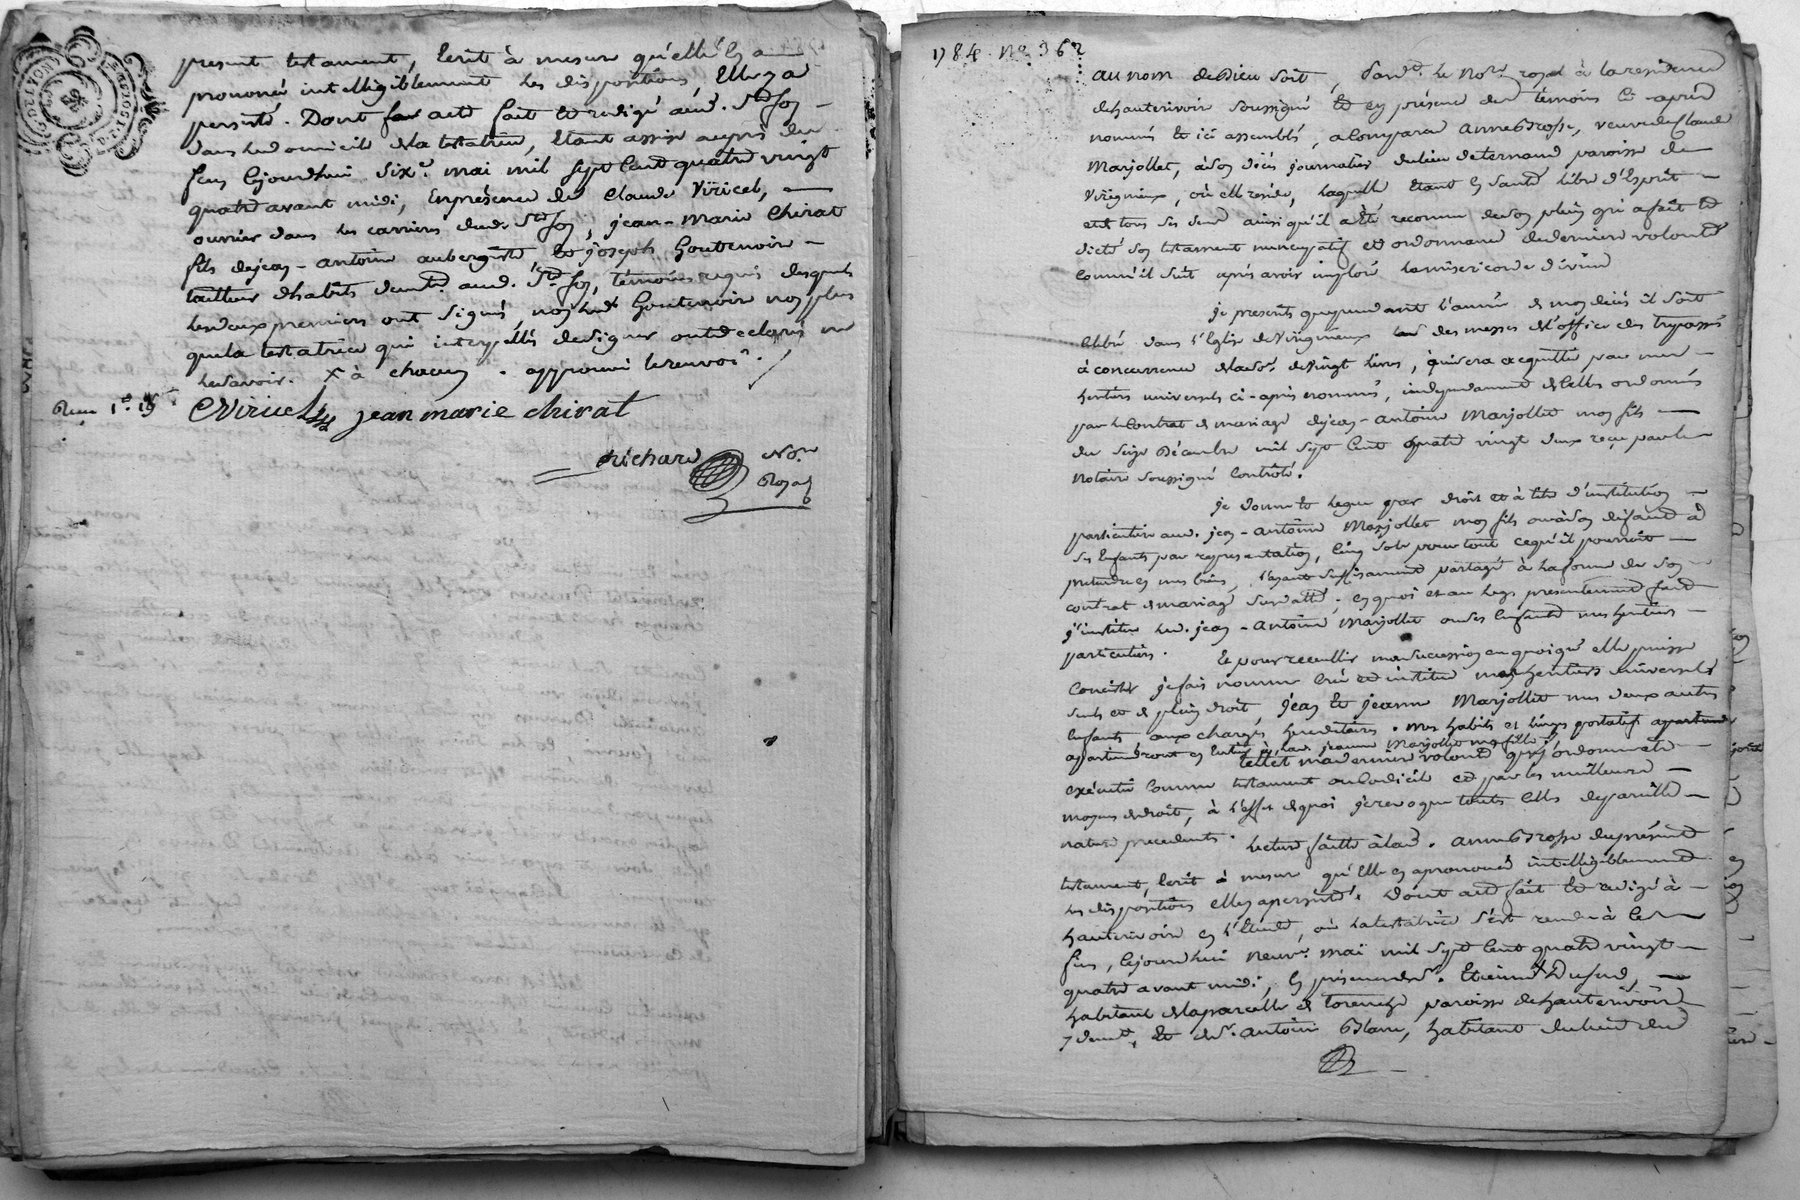 present testament, Ecrit à mesure qu'elle En a
prononcé intelligiblement les dispositions Elle y a
persisté. Dont for acte fait et redigé aud. St foy
dans le domicile de la testatrice, Etant assise auprès du
feu cejourdhui six.e mai mil sept Cent quatre vingt
quatre avant midi, En présence de Claude Viricel,
ouvrier dans les carrieres dud. St foy, jean-Marie Chirat
fils de jean-antoine aubergiste et joseph Goutenoire
tailleur d'habits demt. aud. St foy, témoins requis desquels
les deux premiers ont signés, non led. Goutenoire non plus
que la testatrice qui interpellés de signer ont déclarés ne
le savoir. X à chacun. approuvé le renvoi.
CViricel jean marie chirat
Richard No.re
Royal
1784. No. 362
au nom de Dieu soit, Pard.t le No.re royal à la residence
de hauterivoire soussigné et en présence des témoins ci-après
nommés et ici assemblés, a Comparu anne Grosse, veuve de Claude
Marjollet, à son décès journalier du lieu de ternand paroisse de
Virigneux, où elle reside, laquelle Etant En santé libre d'Esprit
et de tous ses sens ainsi qu'il a Eté reconnu de son plein gré a fait et
dicté son testament nuncupatif et ordonnance de derniere volonté
Comme il suit après avoir imploré la misericorde divine
je prescris que pendant l'année de mon décès il soit
célébré dans l'Eglise de Virigneux des messes de l'office des trépassés
à concurrence de la so.e de Vingt livres, qui sera acquittée par mes
heritiers universels ci-après nommés, independament de Celles ordonnées
par le Contrat de mariage de jean-antoine Marjollet mon fils
du seize Décembre mil sept Cent quatre vingt deux reçu par le
Notaire soussigné Contrôlé.
je donne et legue par droit et à titre d'institution
particuliere aud. jean-antoine Marjollet mon fils ou à son defaut à
ses Enfants par representation, Cinq sols pour tout ce qu'il pourroit
pretendre en mes biens, l'ayant suffisament partagé à la forme de son
contrat de mariage susdatté; en quoi et au legs presentement fait
j'institue led. jean-antoine Marjollet ou ses Enfants mes heritiers
particuliers. Et pour recueillir ma succession en quoi qu'elle puisse
Consister je fais nomme Crée et institue mes heritiers universels
seuls et de plein droit, jean et jeanne Marjollet mes deux autres
Enfants aux charges hereditaires. Mes habits et linges portatifs appartiend
appartiendront en Entier à lad. jeanne Marjollet ma fille
telle est ma derniere volonté que j'ordonne être
exécutée Comme testament ou Codicile et par les meilleures
moyens de droit, à l'effet de quoi je revoque toutes Celles de pareille
nature precedentes. Lecture faitte à lad. anne Grosse du présent
testament, Ecrit à mesure qu'Elle en a prononcé intelligiblement
les dispositions elle y a persisté. Dont acte fait et redigé à
hauterivoire En l'Etude, où la testatrice s'est rendue à Ces
fins, Cejourdhui neuv.e mai mil sept Cent quatre vingt
quatre avant midi, En présence de s.r Etienne Dufour,
habitant de la parcelle de paroisse de hauterivoire
y demt., et de s.r antoine Blanc, habitant du lieu de